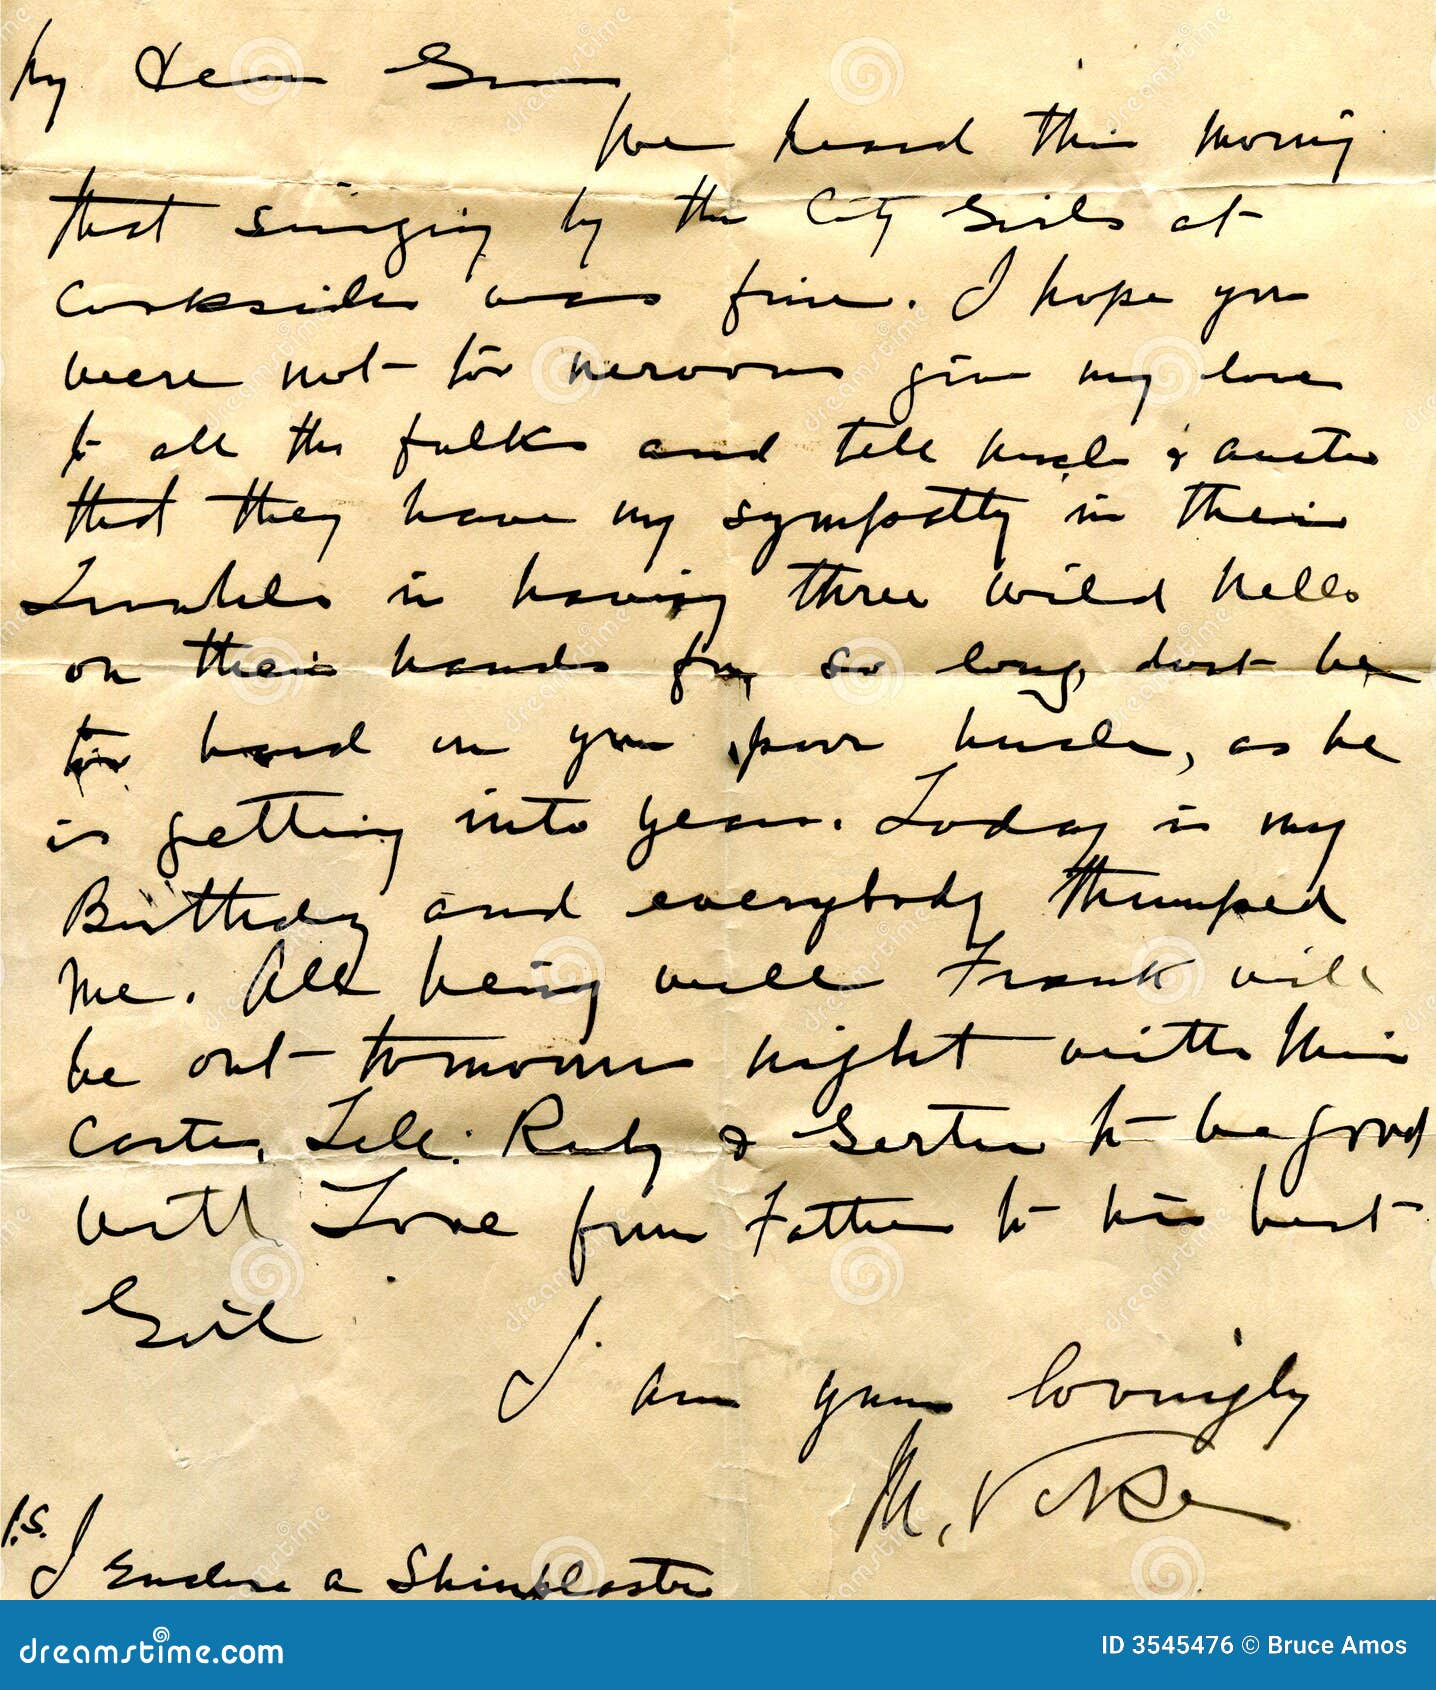 My Dear
We heard this morning
that singing by the City Girls at
was fine. I hope you
were not too nervous give my love
to all the folks and tell Uncle & Auntie
that they have my sympathy in their
Troubles in having three wild hells
on their hands for so long, dont be
too hard on your poor Uncle, as he
is getting into years. Today is my
Birthday and everybody thumped
me. All being well Frank will
be out tomorrow night with Miss
Carter. Tell. Ruby & Gertie to be good
with Love from Father to his best
Girl
I am yours lovingly
M.
P.S.
I Enclose a Shinplaster
dreamstime.com
ID 3545476 © Bruce Amos